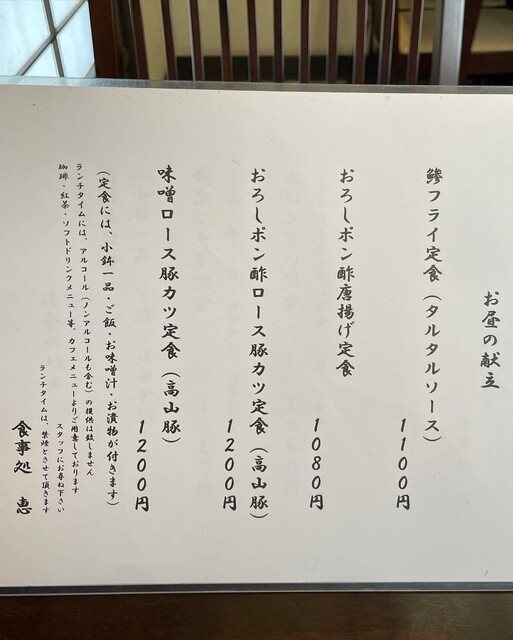 お昼の献立
鯵フライ定食(タルタルソース)
1100円
おろしポン酢唐揚げ定食
1080円
おろしポン酢ロース豚カツ定食(高山豚)
1200円
味噌ロース豚カツ定食(高山豚)
1200円
(定食には、小鉢一品・ご飯・お味噌汁・お漬物が付きます)
ランチタイムには、アルコール(ノンアルコールも含む)の提供は致しません
珈琲・紅茶・ソフトドリンクメニュー等、カフェメニューよりご用意しております
スタッフにお尋ね下さい
ランチタイムは、禁煙とさせて頂きます
食事処 恵